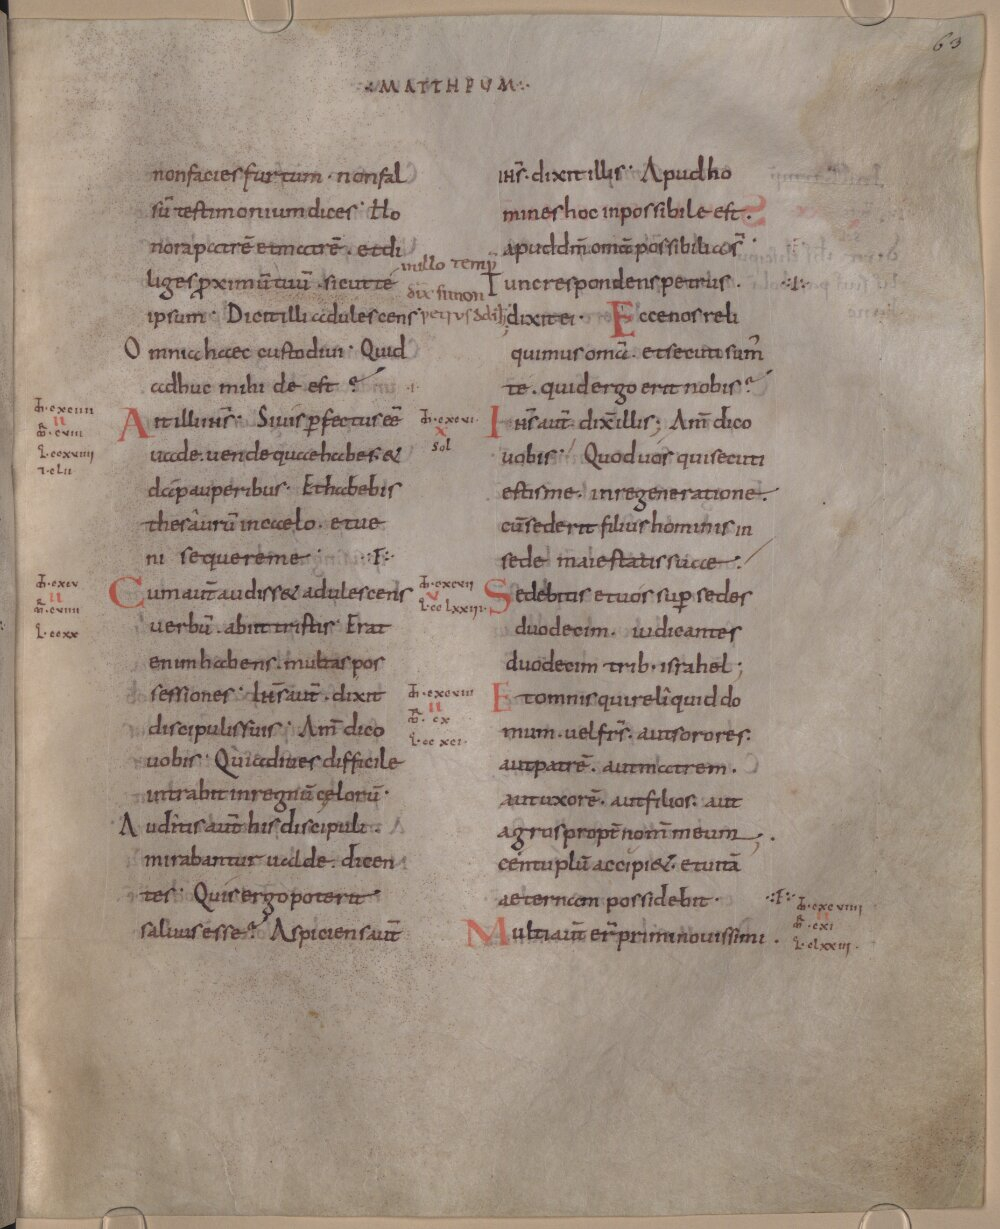 63
·:MATTHEUM:·
non facies furtum · non fal
sū testimonium dices · Ho
nora patrē et matrē · et di
liges proximū tuū · sicut te
ipsum · Dicit illi adulescens
Omnia haec custodivi · Quid
adhuc mihi de est ?
Ait illi ihs · Si vis pfectus eē
vade · vende quae habes &
da pauperibus · Et habebis
thesaurū in caelo · et ve
ni sequere me · ·I·
Cum aut̄ audiss& adulescens
verbū · abiit tristis · Erat
enim habens · multas pos
sessiones · Ihs aut̄ · dixit
discipulis suis · Am̄ dico
vobis · Quia dives difficile
intrabit in regnū celorū ·
Auditis aut̄ his discipuli ·
mirabantur valde · dicen
tes · Quis ergo poterit
salvus esse ? Aspiciens aut̄
in illo temp̄
dix̄ simon
petrus ad ih̄
ihs · dixit illis · Apud ho
mines hoc inpossibile est ·
apud dm̄ omia possibilia s̄ ·
Tunc respondens petrus · ·I·
dixit ei · Ecce nos reli
quimus om̄a · et secuti sum̄
te · quid ergo erit nobis ?
Ihs aut̄ dix̄ illis ; Am̄ dico
vobis · Quod vos qui secuti
estis me · in regeneratione ·
cū sederit filius hominis in
sede maiestatis suae ·
Sedebitis et vos sup sedes
duodecim · iudicantes
duodecim trib · israhel ;
Et omnis qui reliquid do
mum · vel fr̄s · aut sorores ·
aut patrē · aut matrem ·
aut uxorē · aut filios · aut
agros propt̄ nom̄ meum ;
centuplū accipi& · et vitā
aeternam possidebit · ·I·
Multi aut̄ er̄ primi novissimi ·
cxciiii
II
cviii
ccxviiii
cxcv
II
cviiii
ccxx
cxcvi
X
sol
cxcvii
V
cclxxiii
cxcviii
II
cx
cxcviiii
II
cxi
clxxiii